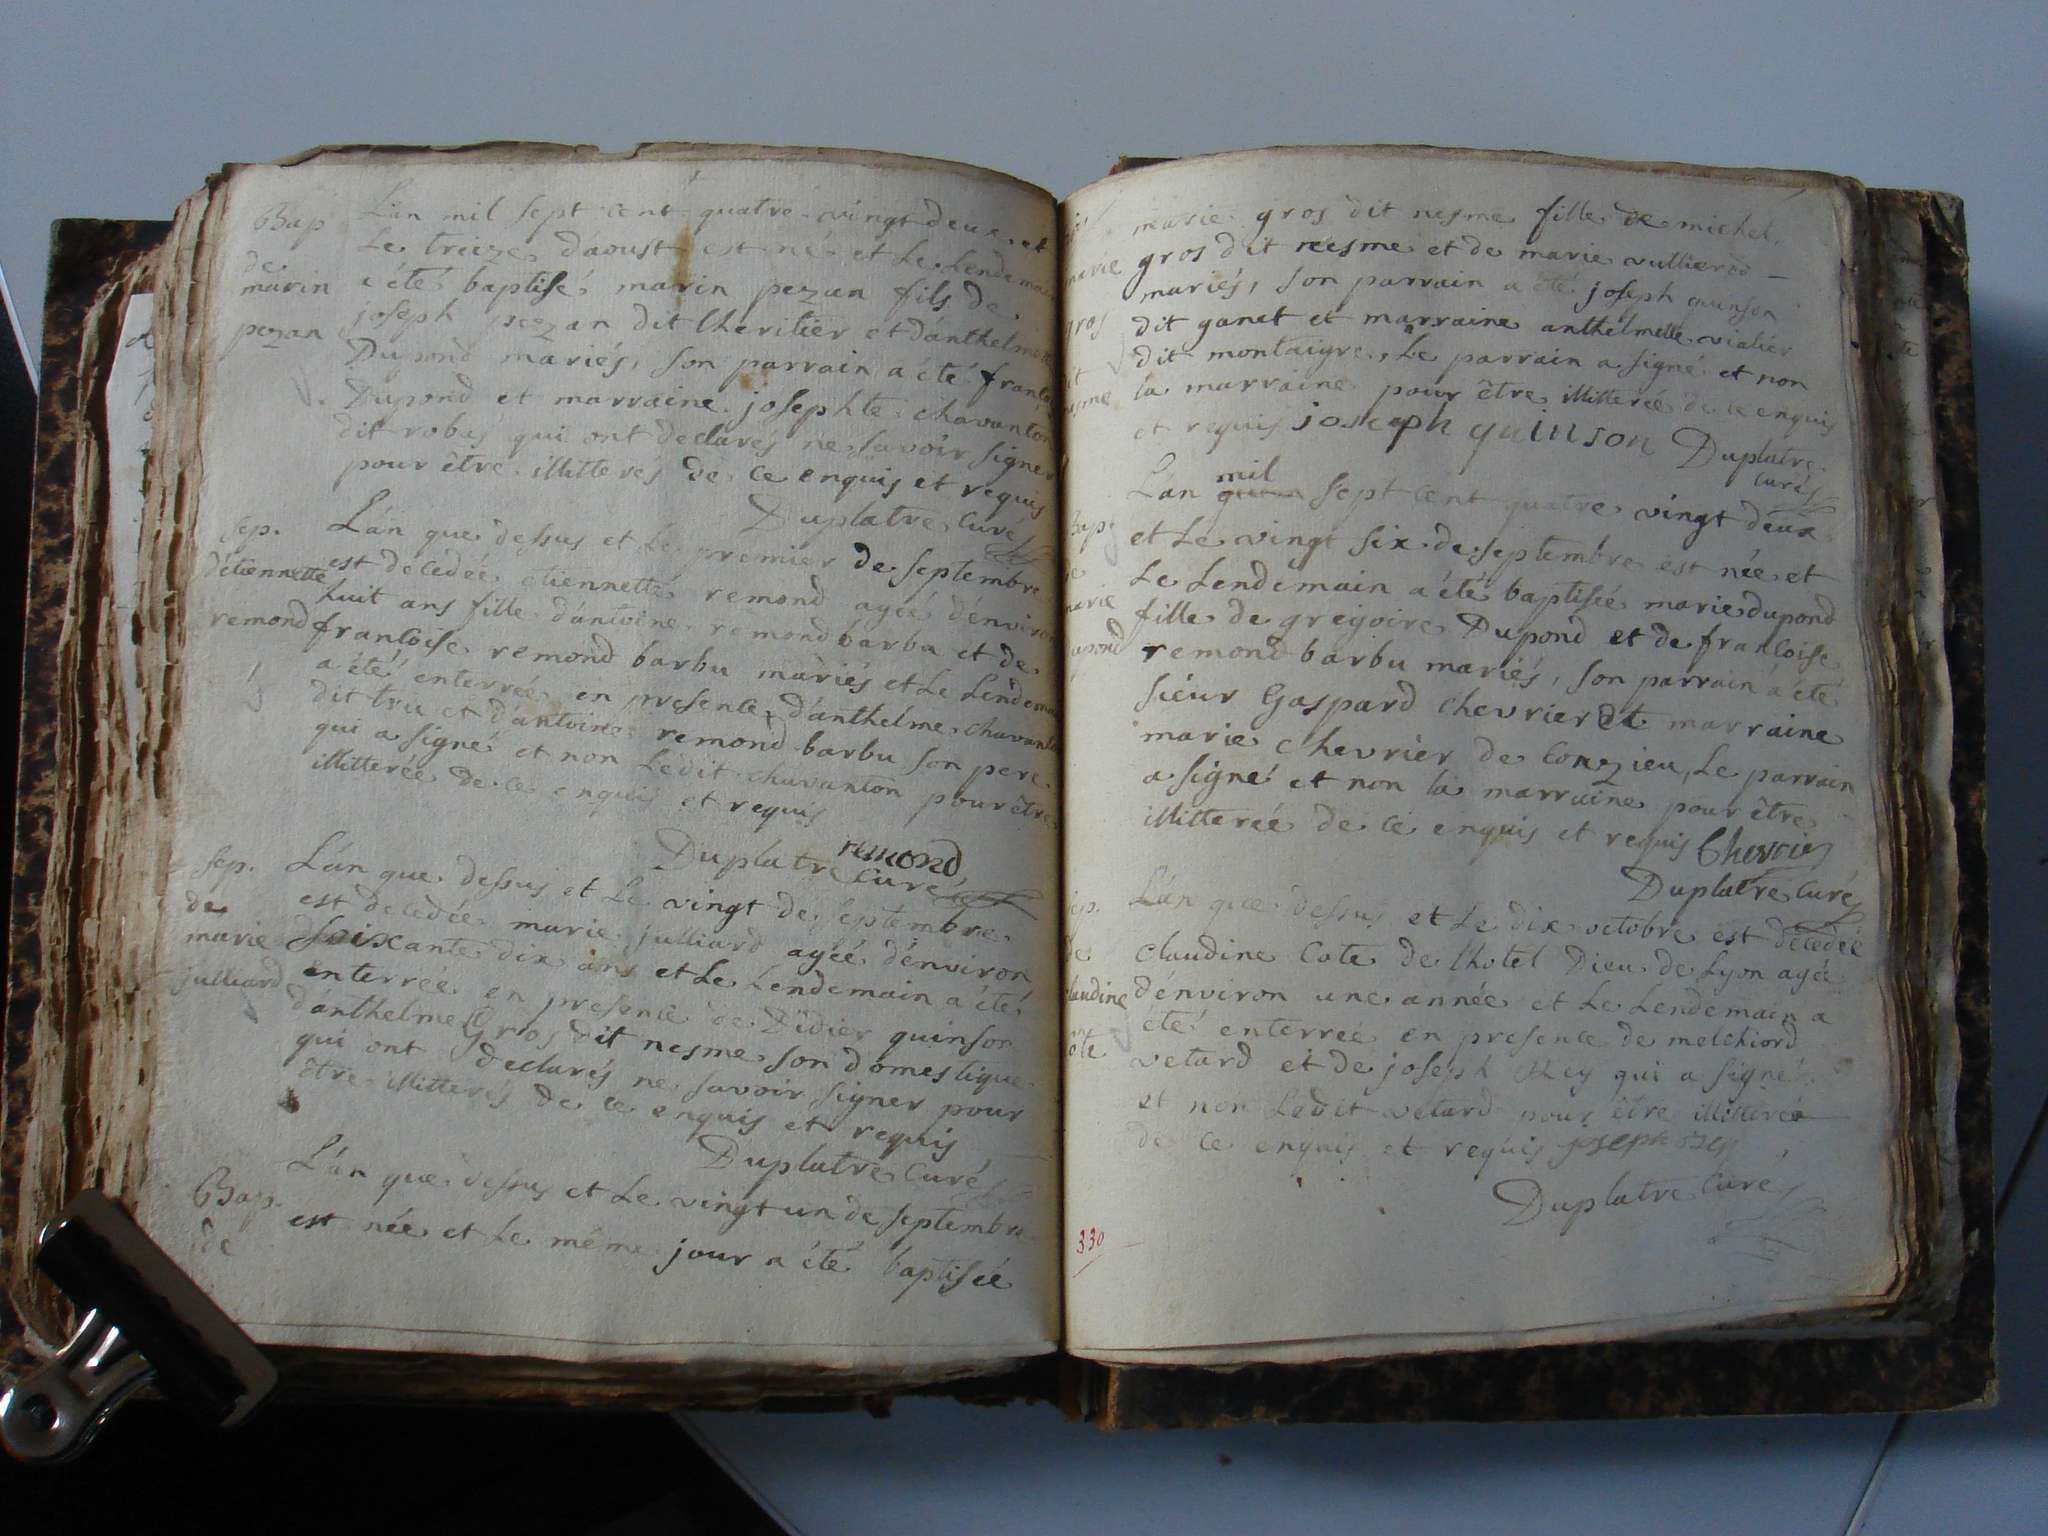 Bap
de
marin
pezan
L'an mil sept cent quatre-vingt deux et
le treize d'aoust est né et le lendemain
a été baptisé marin pezan fils de
joseph pezan dit lheritier et d'anthelmette
Dupond mariés, son parrain a été francois
Dupond et marraine josephte chavanton
dit robas qui ont declarés ne savoir signer
pour être illitterés de ce enquis et requis
Duplatre Curé
Sep.
d'étiennette
remond
L'an que dessus et le premier de septembre
est decedée etiennette remond agée d'environ
huit ans fille d'antoine remond barbu et de
francoise remond barbu mariés et le lendemain
a été enterrée en presence d'anthelme chavanton
dit tru et d'antoine remond barbu son pere
qui a signé et non ledit chavanton pour être
illitterée de ce enquis et requis
remond
Duplatre Curé
Sep.
de
marie
julliard
L'an que dessus et le vingt de septembre
est decedée marie julliard agée d'environ
soixante dix ans et le lendemain a été
enterrée en presence de Didier quinson
d'anthelme Gros dit nesme son domestique
qui ont declarés ne savoir signer pour
être illitterés de ce enquis et requis
Duplatre Curé
Bap.
de
L'an que dessus et le vingt un de septembre
est née et le même jour a été baptisée
marie
gros
dit
nesme
marie gros dit nesme fille de michel
gros dit nesme et de marie vullierod
mariés, son parrain a été joseph quinson
dit ganet et marraine anthelmette vialier
dit montaigre, le parrain a signé et non
la marraine pour être illitterée de ce enquis
et requis joseph quinson Duplatre
curé
Bap.
de
marie
dupond
L'an mil sept cent quatre vingt deux
et le vingt six de septembre est née et
le lendemain a été baptisée marie dupond
fille de gregoire Dupond et de francoise
remond barbu mariés, son parrain a été
sieur Gaspard chevrier et marraine
marie chevrier de Conzieu, le parrain
a signé et non la marraine pour être
illitterée de ce enquis et requis Chevrier
Duplatre Curé
Sep.
de
claudine
cote
L'an que dessus et le dix octobre est decedée
claudine Cote de lhotel Dieu de Lyon agée
d'environ une année et le lendemain a
été enterrée en presence de melchiord
vetard et de joseph rey qui a signé
et non ledit vetard pour être illitterée
de ce enquis et requis joseph rey
Duplatre Curé
330